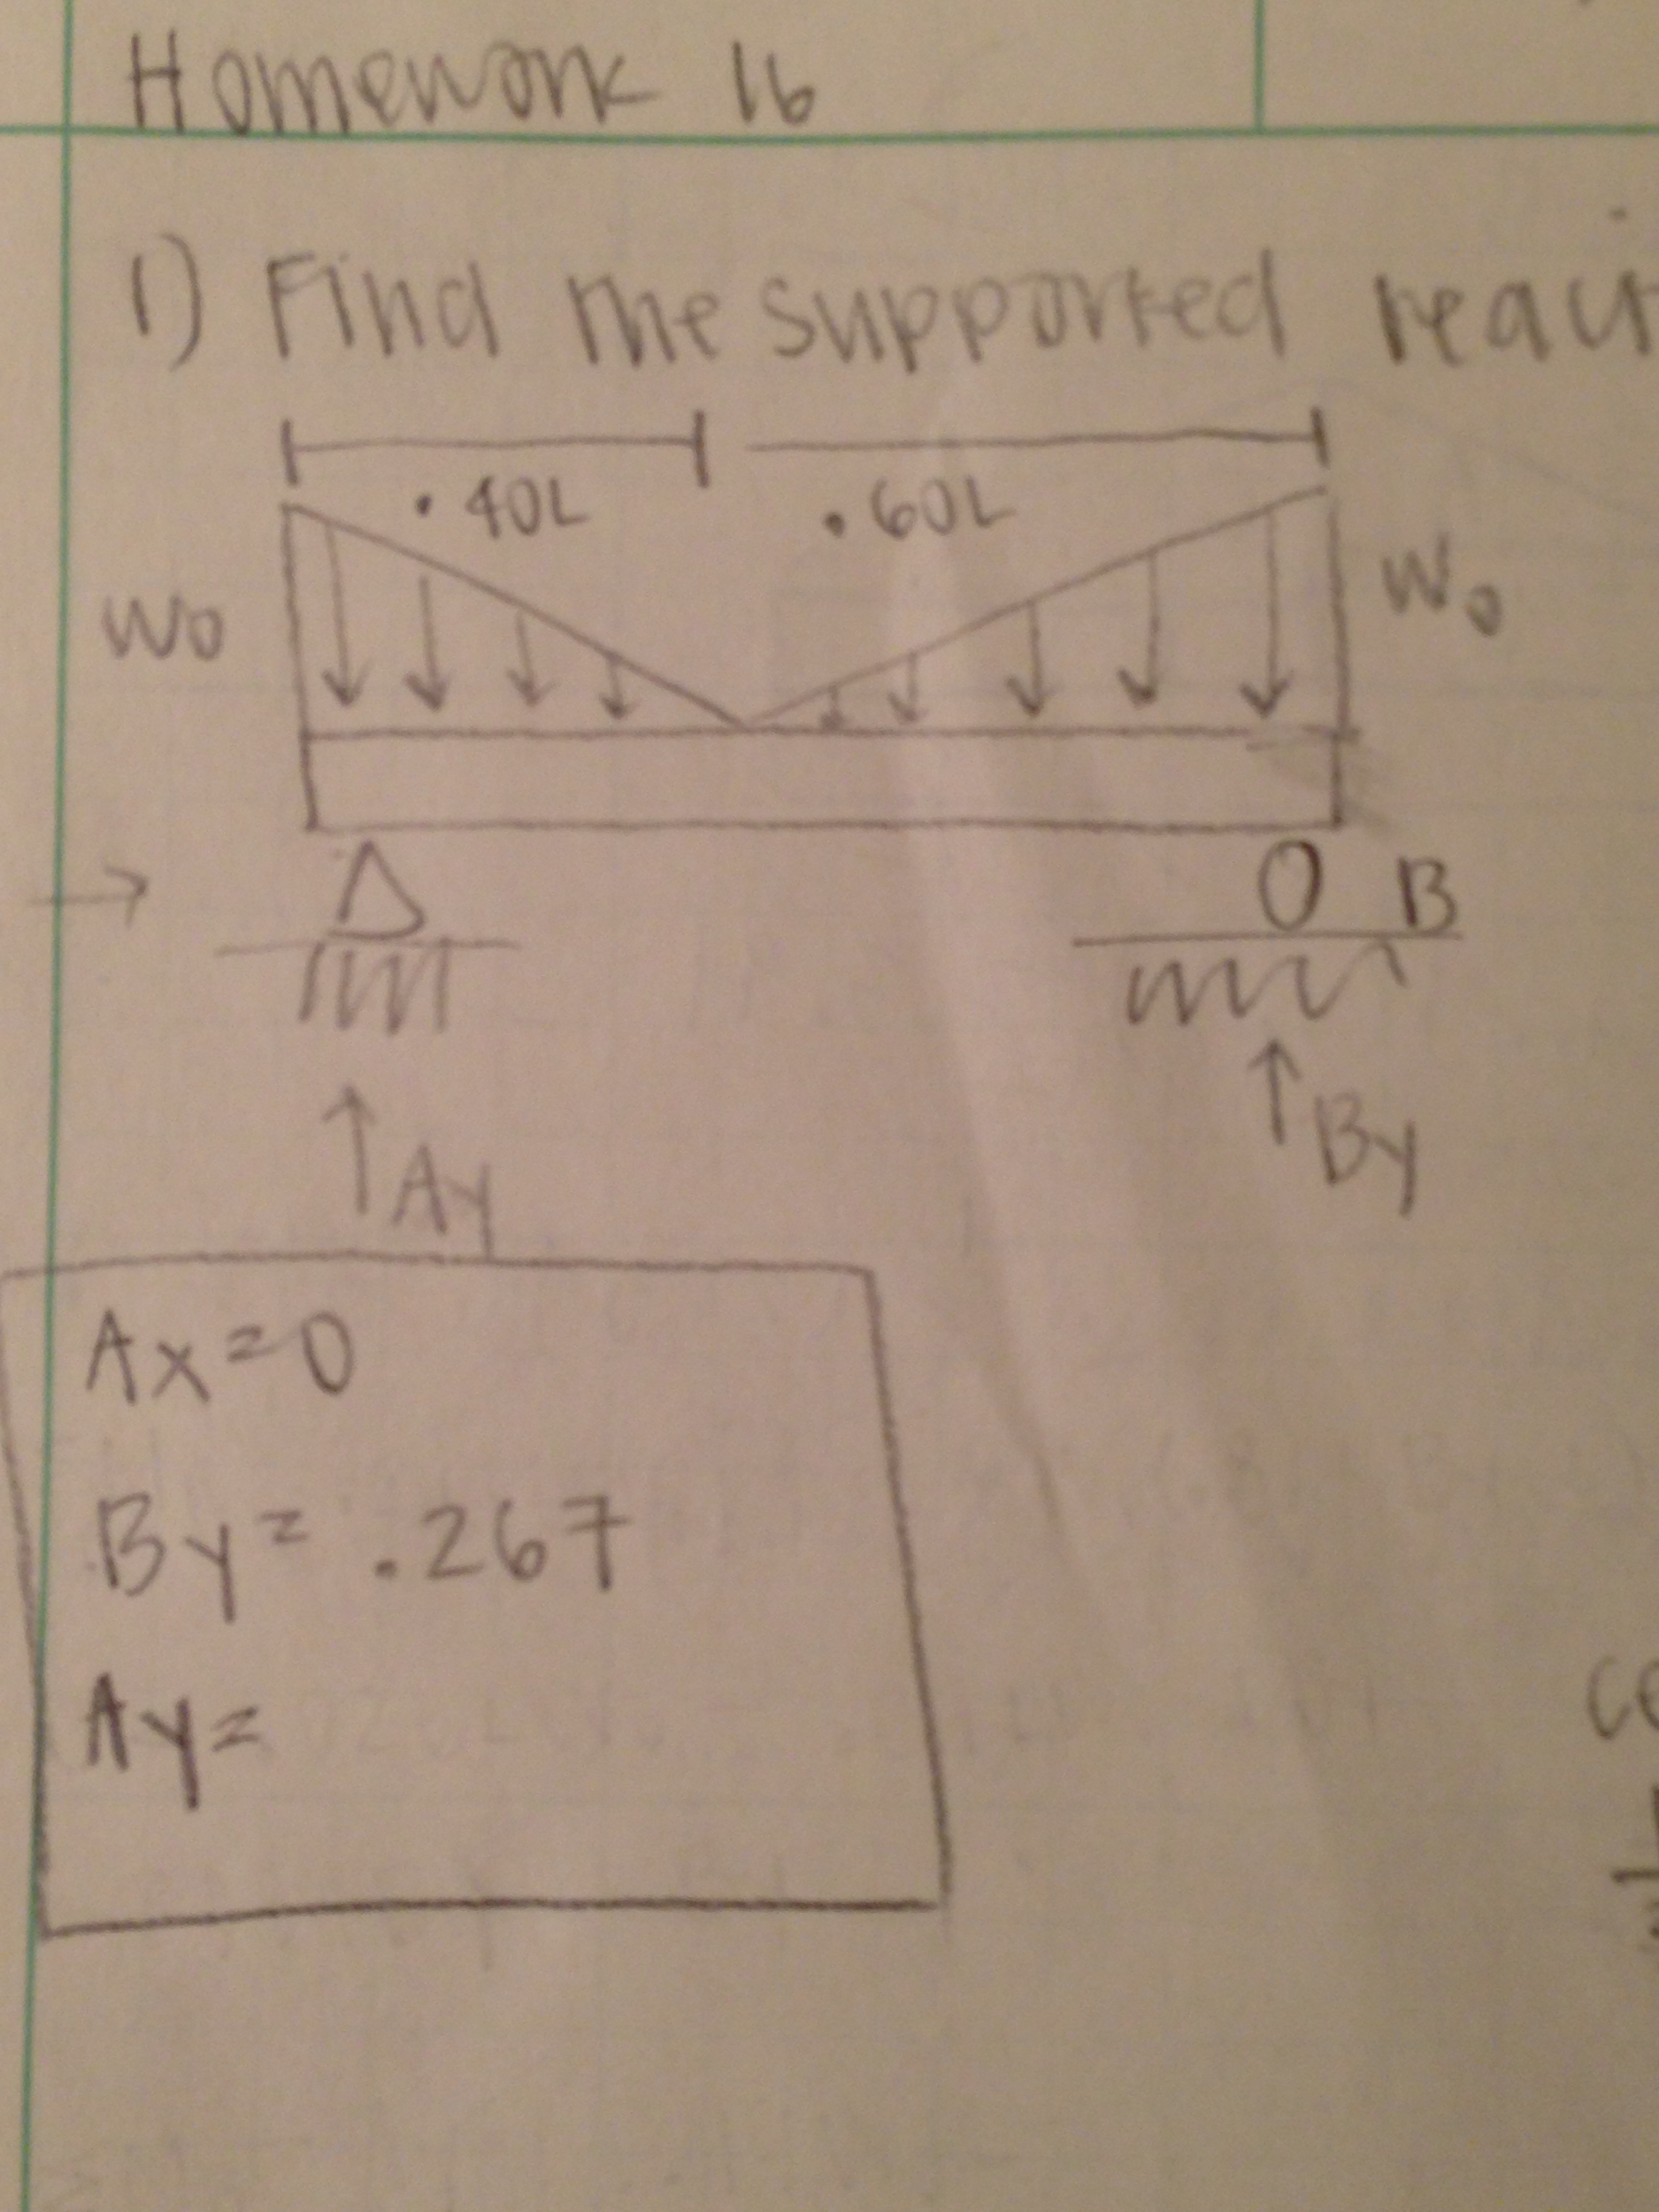 Homework 16
1) Find the supported
.40L .60L
Wo Wo
B
Ay By
Ax=0
By= .267
Ay=